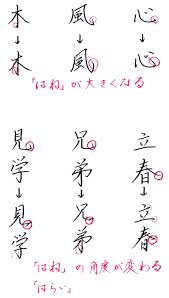 木 風 心
↓ ↓ ↓
木 風 心
「はね」が大きくなる
見 兄 立
学 弟 春
↓ ↓ ↓
見 兄 立
学 弟 春
「はね」の角度が変わる
「はらい」